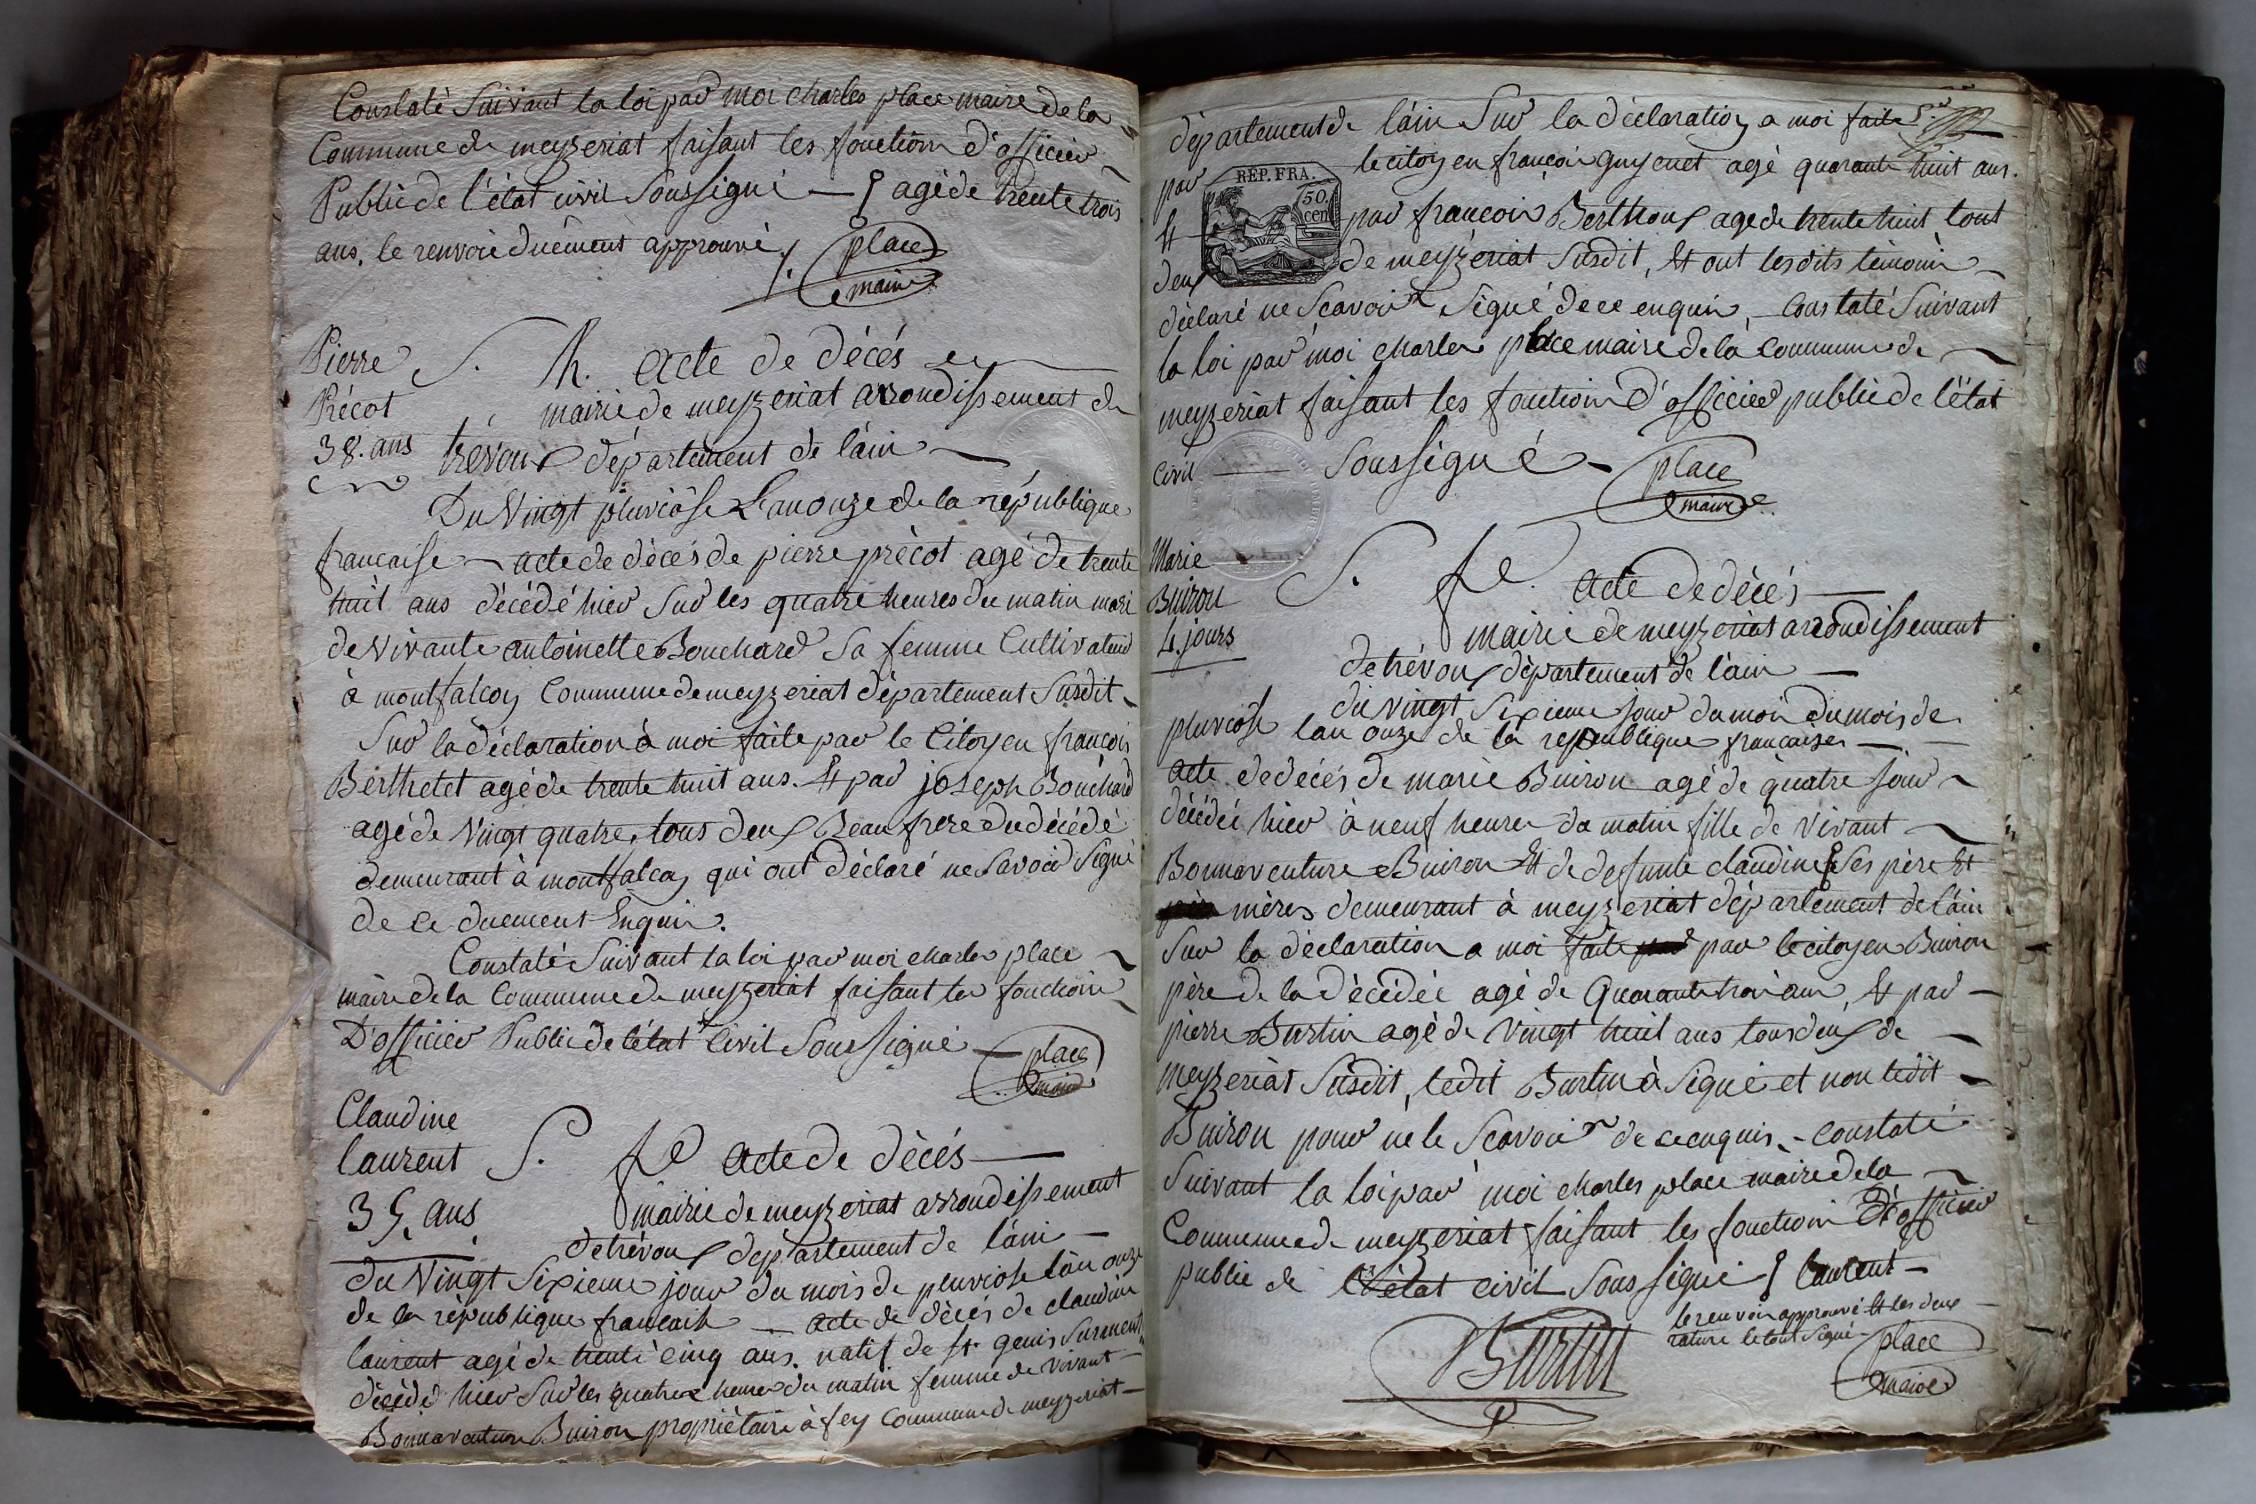 Constaté Suivant la loi par moi charles place maire de la
Commune de meyzeriat faisant les fonction d'officier
Public de l'état civil Soussigné — agé de trente trois
ans. le renvoie duement approuvé place
maire
Pierre
Précot
38. ans
S. h. acte de décés
mairie de meyzeriat arrondissement de
trévoux département de l'ain
Du Vingt pluviôse L'an onze de la république
francaise — acte de décés de pierre précot agé de trente
huit ans décédé hier Sur les quatre heures du matin mari
de Vivante antoinette Bouchard Sa femme Cultivateur
à montfalcon Commune de meyzeriat département Susdit
Sur la déclaration à moi faite par le Citoyen francois
Berthetet agé de trente huit ans. Et par joseph Bouchard
agé de Vingt quatre, tous deux Beau frere du décédé
demeurant à montfalcon qui ont déclaré ne Savoir Signé
de ce duement Enquis.
Constaté Suivant la loi par moi charles place
maire de la Commune de meyzeriat faisant les fonction
D'officier Public de l'état Civil Soussigné place
maire
Claudine
laurent
35. ans
S. fe acte de décés
mairie de meyzeriat arrondissement
de trévoux département de l'ain
du Vingt Sixieme jour du mois de pluviose l'an onze
de la république francaise — acte de décés de claudine
laurent agé de trente cinq ans. natif de St. genis Surment
décédé hier Sur les quatre heures du matin femme de Vivant
Bonnaventure Buiron propriétaire à fey Commune de meyzeriat
département de l'ain Sur la déclaration a moi faite
par REP. FRA. le citoyen francois guyenet agé quarante huit ans.
Et 50. cen par francois Berthoux age de trente huit tout
deux de meyzériat Susdit, Et ont les dits témoin
déclaré ne Scavoir Signé de ce enquis, — Constaté Suivant
la loi par moi charles place maire de la Commune de
meyzeriat faisant les fonction d'officier public de l'état
Civil — Soussigné — place
maire
Marie
Buiron
4. jours
S. fe. acte de décés
mairie de meyzeriat arrondissement
de trévoux département de l'ain
du vingt Sixieme jour du moi du mois de
pluviose l'an onze de la republique francaises
acte de décés de marie Buiron agé de quatre jour
décédéé hier à neuf heures da matin fille de Vivant
Bonnaventure Buiron Et de defunte claudine Ses père Et
mères demeurant à meyzeriat département de l'ain
Sur la déclaration a moi faite par le citoyen Buiron
père de la décédéé agé de Quarante trois ans, Et par
pierre Burtin agé de Vingt huit ans tous deux de
meyzériat Susdit, ledit Burtin à Signé et non ledit
Buiron pour ne le Scavoir de ce enquis. — constaté
Suivant la loi par moi charles place maire de la
Commune de meyzeriat faisant les fonction d'officier
public de l'état civil Soussigné laurent
le renvoi approuvé Et les deux
rature le tout Signé place
Burtin maire